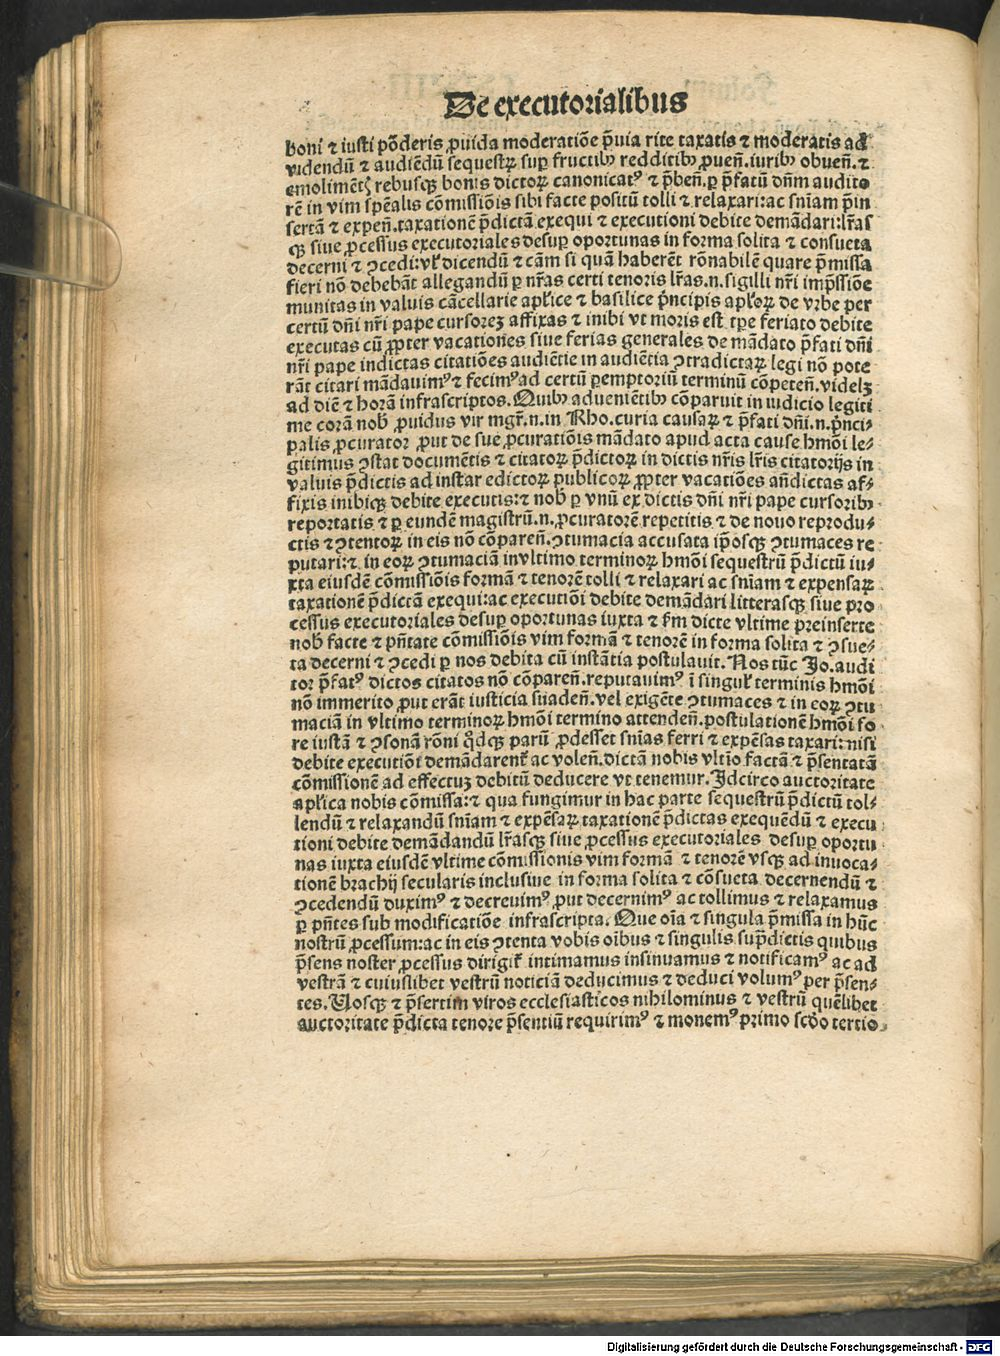 De executorialibus
boni ⁊ iusti põderis ꝓuida moderatiõe p̃uia rite taxatis ⁊ moderatis ad
videndũ ⁊ audiẽdũ sequestꝝ suꝑ fructibꝰ redditibꝰ ꝓuen̄. iuribꝰ obuen̄. ⁊
emolimẽtꝭ rebusqꝫ bonis dictoꝝ canonicatꝰ ⁊ p̃ben̄. ꝑ p̃fatũ dñm audito
rẽ in vim sp̃ealis cõmissiõis sibi facte positũ tolli ⁊ relaxari: ac sñiam p̃in
sertã ⁊ expen̄. taxationẽ p̃dictã exequi ⁊ executioni debite demãdari: lr̃as
qꝫ siue ꝓcessus executoriales desuꝑ oportunas in forma solita ⁊ consueta
decerni ⁊ ꝯcedi: vl̓ dicendũ ⁊ cãm si quã haberẽt rõnabilẽ quare p̃missa
fieri nõ debebãt allegandũ ꝑ nr̃as certi tenoris lr̃as .n. sigilli nr̃i imp̃ssiõe
munitas in valuis cãcellarie apl̓ice ⁊ basilice p̓ncipis apl̓oꝝ de vrbe per
certũ dñi nr̃i pape cursorez affixas ⁊ inibi vt moris est tp̃e feriato debite
executas cũ ꝓpter vacationes siue ferias generales de mãdato p̃fati dñi
nr̃i pape indictas citatiões audiẽtie in audiẽtia ꝯtradictaꝝ legi nõ pote
rãt citari mãdauimꝰ ⁊ fecimꝰ ad certũ ꝑemptoriũ terminũ cõpeten̄. videlꝫ
ad diẽ ⁊ horã infrascriptos. Quibꝰ adueniẽtibꝰ cõparuit in iudicio legiti
me corã nob̓ ꝓuidus vir mgr̃. n. in Rho. curia causaꝝ ⁊ p̃fati dñi .n. p̓nci⸗
palis ꝓcurator ꝓut de sue ꝓcuratiõis mãdato apud acta cause hm̃oi le⸗
gitimus ꝯstat documẽtis ⁊ citatoꝝ p̃dictoꝝ in dictis nr̃is lr̃is citatorijs in
valuis p̃dictis ad instar edictoꝝ publicoꝝ ꝓpter vacatiões añdictas af⸗
fixis inibiqꝫ debite executis: ⁊ nob̓ ꝑ vnũ ex dictis dñi nr̃i pape cursoribꝰ
reportatis ⁊ ꝑ eundẽ magistrũ .n. ꝓcuratorẽ repetitis ⁊ de nouo reprodu⸗
ctis ⁊ ꝯtentoꝝ in eis nõ cõparen̄. ꝯtumacia accusata ip̃osqꝫ ꝯtumaces re
putari: ⁊ in eoꝝ ꝯtumaciã in vltimo terminoꝝ hm̃oi sequestrũ p̃dictũ iu⸗
xta eiusdẽ cõmissiõis formã ⁊ tenorẽ tolli ⁊ relaxari ac sñiam ⁊ expensaꝝ
taxationẽ p̃dictã exequi: ac executiõi debite demãdari litterasqꝫ siue pro
cessus executoriales desuꝑ oportunas iuxta ⁊ f̓m dicte vltime preinserte
nob̓ facte ⁊ p̃ntate cõmissiõis vim formã ⁊ tenorẽ in forma solita ⁊ ꝯsue⸗
ta decerni ⁊ ꝯcedi ꝑ nos debita cũ instãtia postulauit. Nos tũc Jo. audi
tor p̃fatꝰ dictos citatos nõ cõparen̄. reputauimꝰ ĩ singul̓ terminis hm̃oi
nõ immerito ꝓut erãt iusticia suaden̄. vel exigẽte ꝯtumaces ⁊ in eoꝝ ꝯtu
maciã in vltimo terminoꝝ hm̃oi termino attenden̄. postulationẽ hm̃oi fo
re iustã ⁊ ꝯsonã rõni qͦdqꝫ parũ ꝓdesset sñias ferri ⁊ expẽsas taxari: nisi
debite executiõi demãdarent᷑ ac volen̄. dictã nobis vltĩo factã ⁊ p̃sentatã
cõmissionẽ ad effectuꝫ debitũ deducere vt tenemur. Jdcirco auctoritate
apl̓ica nobis cõmissa: ⁊ qua fungimur in hac parte sequestrũ p̃dictũ tol⸗
lendũ ⁊ relaxandũ sñiam ⁊ expẽsaꝝ taxationẽ p̃dictas exequẽdũ ⁊ execu
tioni debite demãdandũ lr̃asqꝫ siue ꝓcessus executoriales desuꝑ oportu
nas iuxta eiusdẽ vltime cõmissionis vim formã ⁊ tenorẽ vsqꝫ ad inuoca⸗
tionẽ brachij secularis inclusiue in forma solita ⁊ cõsueta decernendũ ⁊
ꝯcedendũ duximꝰ ⁊ decreuimꝰ ꝓut decernimꝰ ac tollimus ⁊ relaxamus
ꝑ p̃ntes sub modificatiõe infrascripta. Que oĩa ⁊ singula p̃missa in hũc
nostrũ ꝓcessum: ac in eis ꝯtenta vobis oĩbus ⁊ singulis sup̃dictis quibus
p̃sens noster ꝓcessus dirigit᷑ intimamus insinuamus ⁊ notificamꝰ ac ad
vestrã ⁊ cuiuslibet vestrũ noticiã deducimus ⁊ deduci volumꝰ per p̃sen⸗
tes. Uosqꝫ ⁊ p̃sertim viros ecclesiasticos nihilominus ⁊ vestrũ quẽlibet
auctoritate p̃dicta tenore p̃sentiũ requirimꝰ ⁊ monemꝰ primo scd̓o tertio
Digitalisierung gefördert durch die Deutsche Forschungsgemeinschaft - DFG